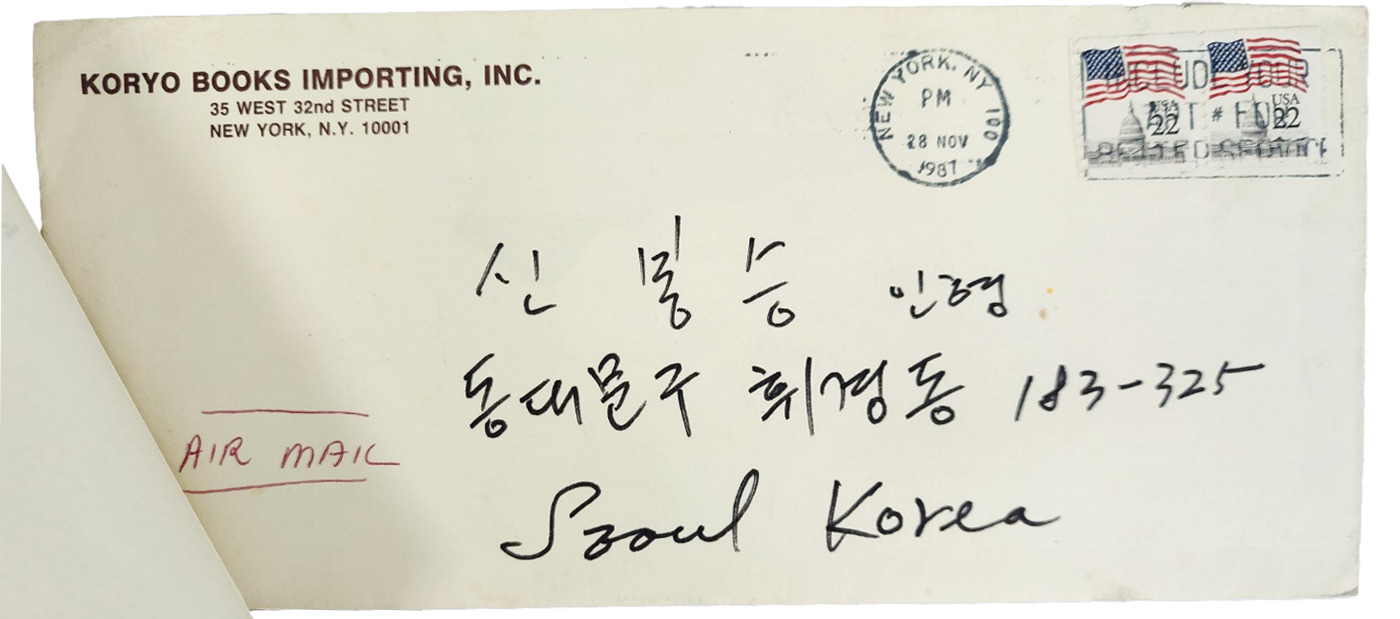 KORYO BOOKS IMPORTING, INC.
35 WEST 32nd STREET
NEW YORK, N.Y. 10001
NEW YORK, NY 100
PM
28 NOV
1987
USA 22
USA 22
INCLUDE YOUR
APT # FOR
BETTER SERVICE
신봉승 인형
동대문구 휘경동 183-325
AIR MAIL
Seoul Korea